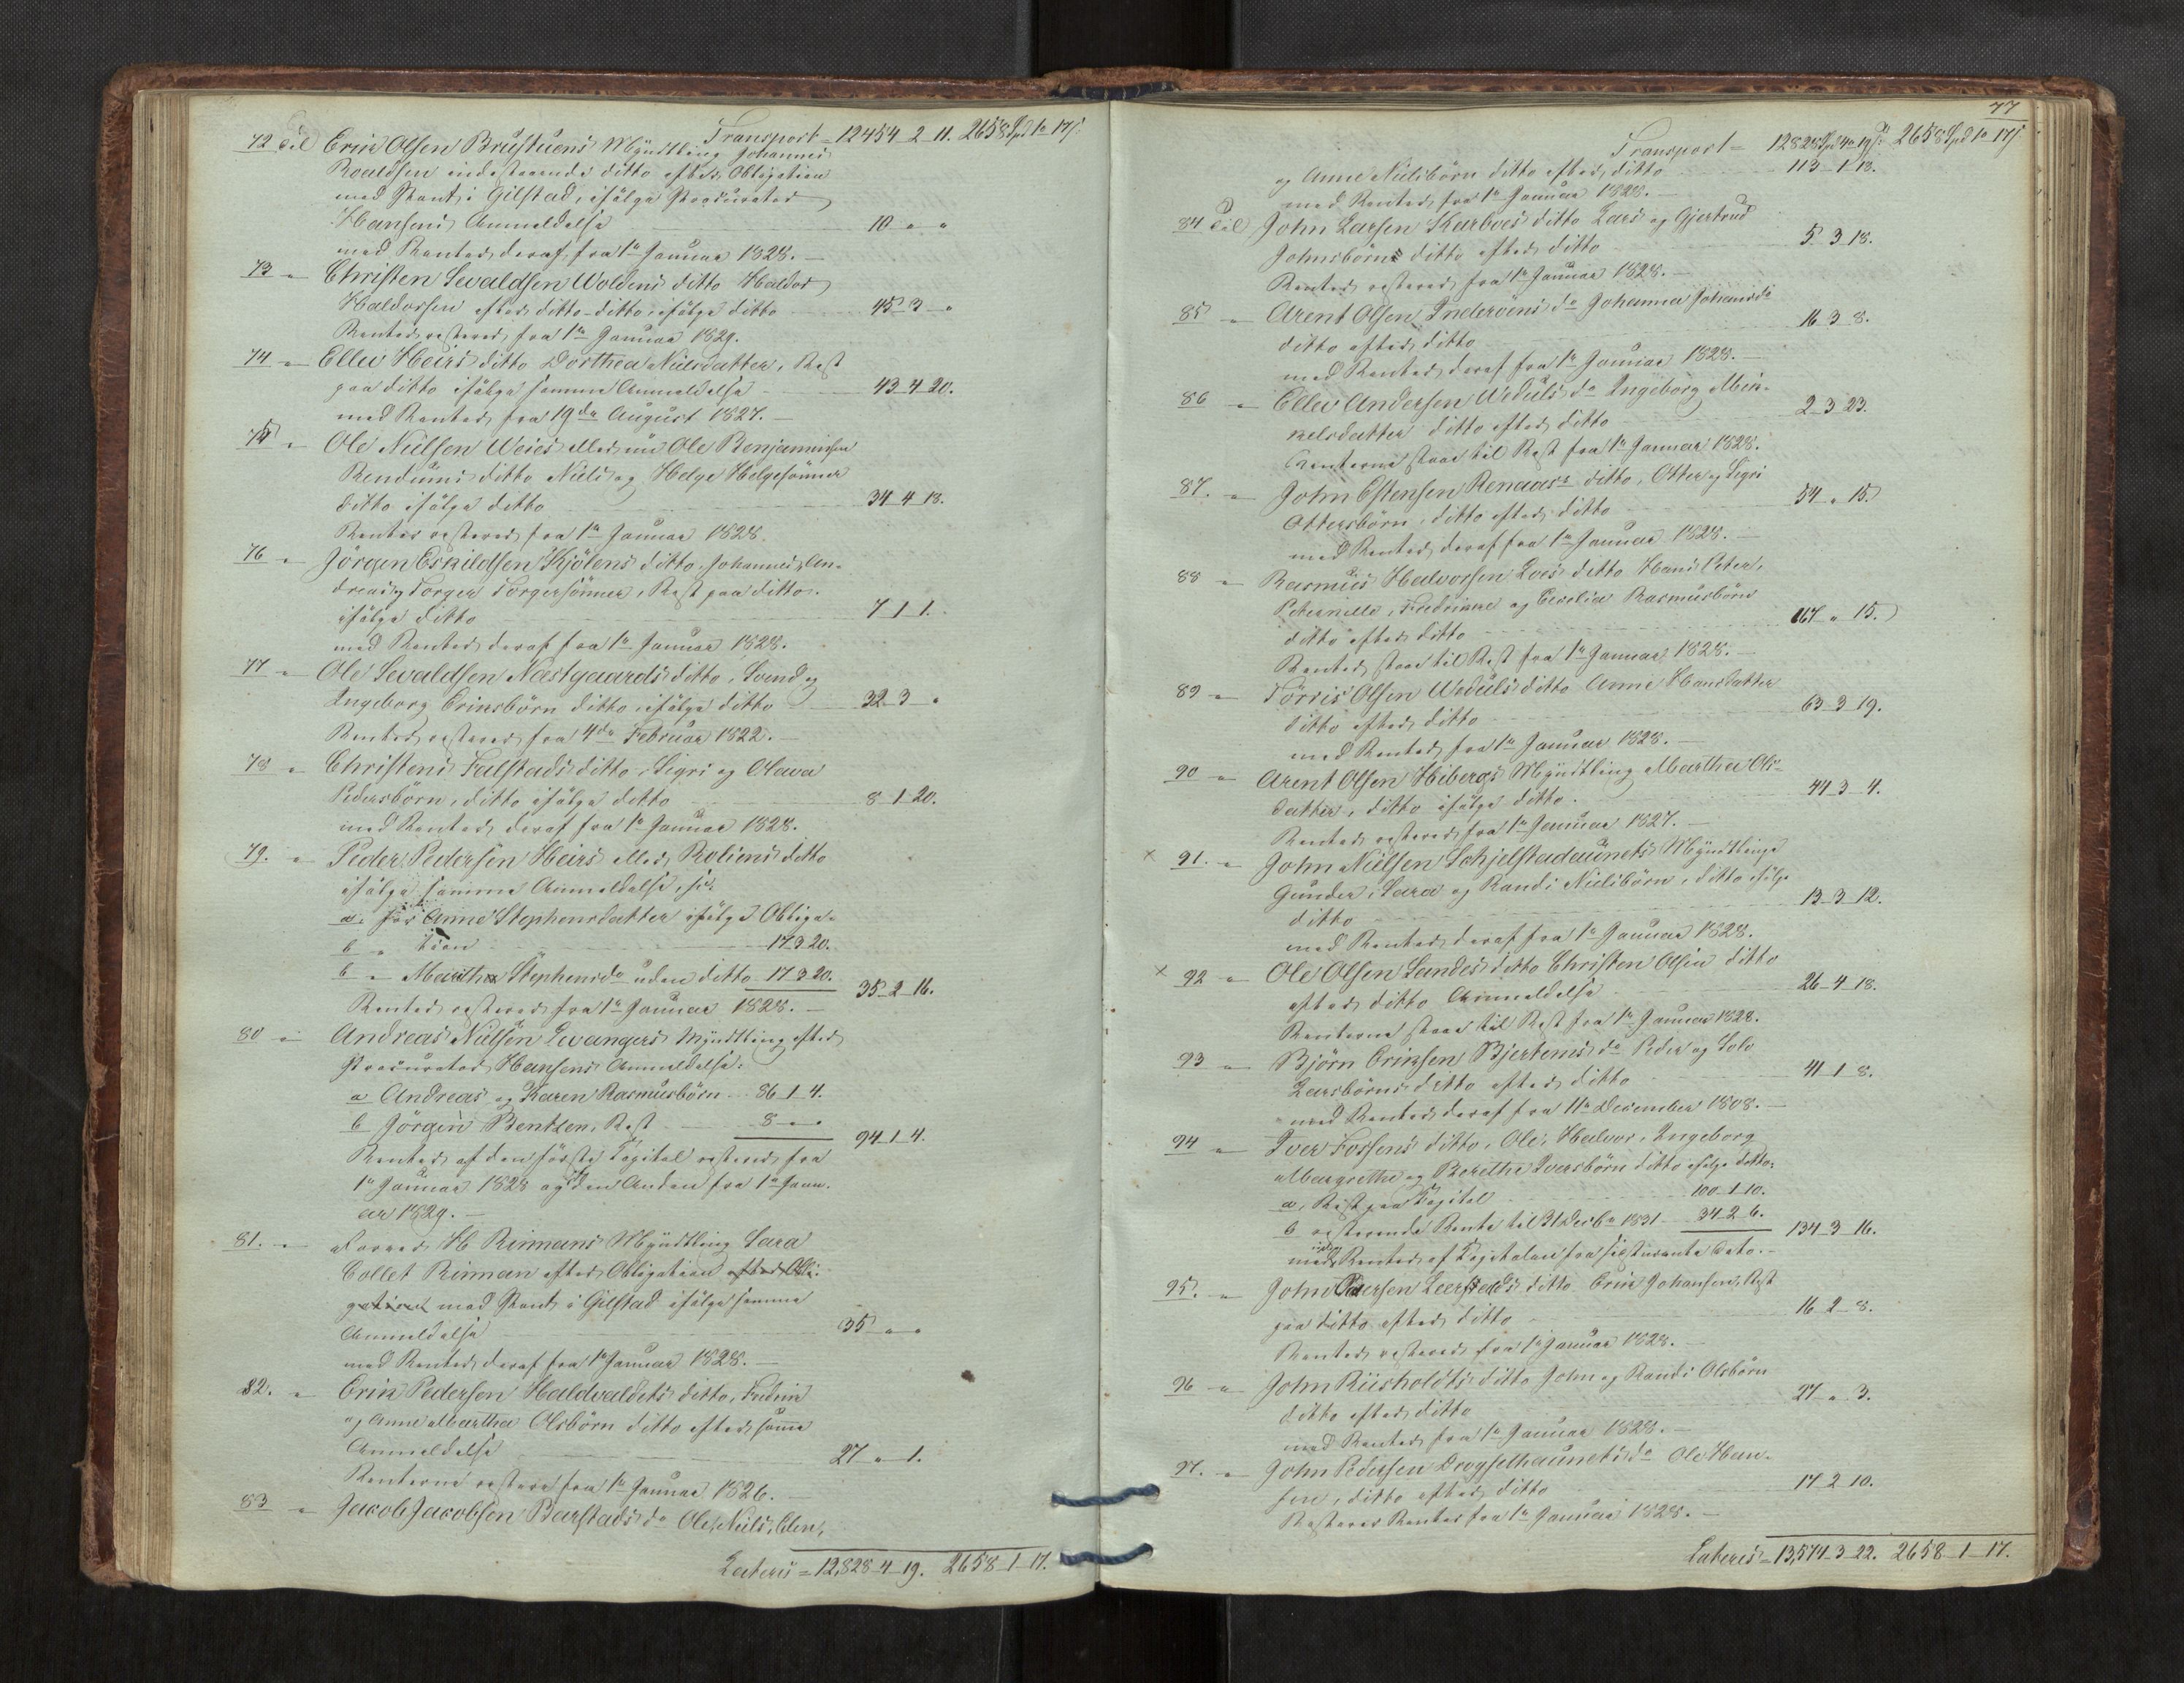 Transport = 12454 2 11. 2658 Spd 1 17
72 til Erik Olsen Brustuens Myndtling Johannes
Roaldsen indestaaende ditto efter Obligation
med Pant i Gilstad, ifølge Procurator
Hansens Anmeldelse 10 " "
med Renter deraf fra 1te Januar 1828.
73 " Christen Sevaldsen Woldens ditto Haldor
Haldorsen efter ditto ditto ifølge ditto 45 3 "
Renter resterer fra 1te Januar 1829.
74 " Ellev Heirs ditto Dorthea Nielsdatter, Rest
paa ditto ifølge samme Anmeldelse 43 4 20.
med Renter fra 19de August 1827.
75 " Ole Nielsen Weies eller nu Ole Benjaminsen
Rendums ditto Niels og Helge Helgesønner
ditto ifølge ditto 34 4 18.
Renter resterer fra 1te Januar 1828.
76 " Jörgen Eskildsen Kjölens ditto, Johannes, An-
dreas og Torger Torgersønner, Rest paa ditto
ifølge ditto 7 1 1.
med Renter deraf fra 1te Januar 1828.
77 " Ole Sevaldsen Næstgaards ditto, Svend og
Ingeborg Eriksbörn ditto ifølge ditto 32 3 "
Renter resterer fra 4de Februar 1822.
78 " Christens Falstads ditto, Sigri og Olava
Pedersbörn, ditto ifølge ditto 8 1 20.
med Renter deraf fra 1te Januar 1828.
79. " Peder Pedersen Heirs eller Roliens ditto
ifølge samme Anmeldelse,
a. for Anne Stephensdatter ifølge Obliga-
b " tion 17 3 20.
b " Martha Stephensdr uden ditto 17 3 20. 35 2 16.
Renter resterer fra 1te Januar 1828.
80 " Andreas Nielsen Levangers Myndtling efter
Procurator Hansens Anmeldelse:
a Andreas og Karen Rasmusbörn 86 1 4.
b Jörgen Bentzen, Rest 8 " " 94 1 4.
Renter af den første Kapital resterer fra
1te Januar 1828 og den Anden fra 1te Janu-
ar 1829.
81. " H Rinmans Myndtling Sara
Collet Rinman efter Obligation efter Obli-
gation med Pant i Gilstad ifølge samme
Anmeldelse 35 " "
med Renter deraf fra 1te Januar 1828.
82. " Erik Pedersen Haldvaldets ditto, Fredrik
og Anne Martha Olsbörn ditto efter samme
Anmeldelse 27 " 1.
Renterne restere fra 1te Januar 1826.
83 " Jacob Jacobsen Barstads do Ole, Niels, Elen,
Lateris = 12,828 4 19. 2658 1 17.
77
Transport = 12828 Spd 4 19 2658 Spd 1 17
og Anne Nielsbörn ditto efter ditto 113 1 13.
med Renter fra 1te Januar 1828.
84 til John Larsen Karboes ditto Lars og Gjertrud
Johnsbörns ditto efter ditto 5 3 18.
Renter resterer fra 1te Januar 1828.
85 " Arent Olsen Inderøens do Johanna Johansdr
ditto efter ditto 16 3 8.
med Renter deraf fra 1te Januar 1828.
86 " Ellev Andersen Weduls do Ingeborg Min-
kelsdatter ditto efter ditto 2 3 23.
Renterne staae til Rest fra 1te Januar 1828.
87. " John Estensen Renaas's ditto, Otter og Sigri
Ottersbörn, ditto efter ditto 54 " 15.
med Renter deraf fra 1te Januar 1828.
88 " Rasmus Halvorsen Loes ditto Hans Peter,
Peternille, Fredrikke og Cecelia Rasmusbörn
ditto efter ditto 167 " 15.
Renter staae til Rest fra 1te Januar 1828.
89 " Törris Olsen Weduls ditto Anne Hansdatter
ditto efter ditto 63 3 19.
med Renter fra 1te Januar 1828.
90 " Arent Olsen Hibergs Myndtling Martha Ols-
datter, ditto ifølge ditto 44 3 4.
Renter resterer fra 1te Januar 1827.
x 91. " John Nielsen Schjelstadaunets Myndtlinge
Gunder, Sara og Randi Nielsbörn, ditto ifølge
ditto 13 3 12.
med Renter deraf fra 1te Januar 1828.
x 92 " Ole Olsen Sandes ditto Christen Olsen ditto
efter ditto Anmeldelse 26 4 18.
Renterne staae til Rest fra 1te Januar 1828.
93 " Björn Eriksen Bjertems do Peder og Solo
Larsbörns ditto efter ditto 41 1 8.
med Renter deraf fra 11te December 1808.
94 " Iver Fossens ditto, Ole, Halvor, Ingeborg
Margrethe og Berethe Iversbörn ditto ifølge ditto
a, Rest paa Kapital 100 1 10.
b resterende Rente til 31 Decbr 1831 34 2 6. 134 3 16.
med Renter af Kapitalen fra sidstnævnte Dato.
95. " John Larsen Leerstads ditto Erik Johansen, Rest
paa ditto efter ditto 16 2 8.
Renter resterer fra 1te Januar 1828.
96 " John Riisholdts ditto John og Randi Olsbörn
ditto efter ditto 27 " 3.
med Renter fra 1te Januar 1828.
97. " John Pedersen Drogsethaunets do Ole Han-
sen, ditto efter ditto 17 2 10.
Resterer Renter fra 1te Januar 1828.
Lateris = 13,574 3 22. 2658 1 17.